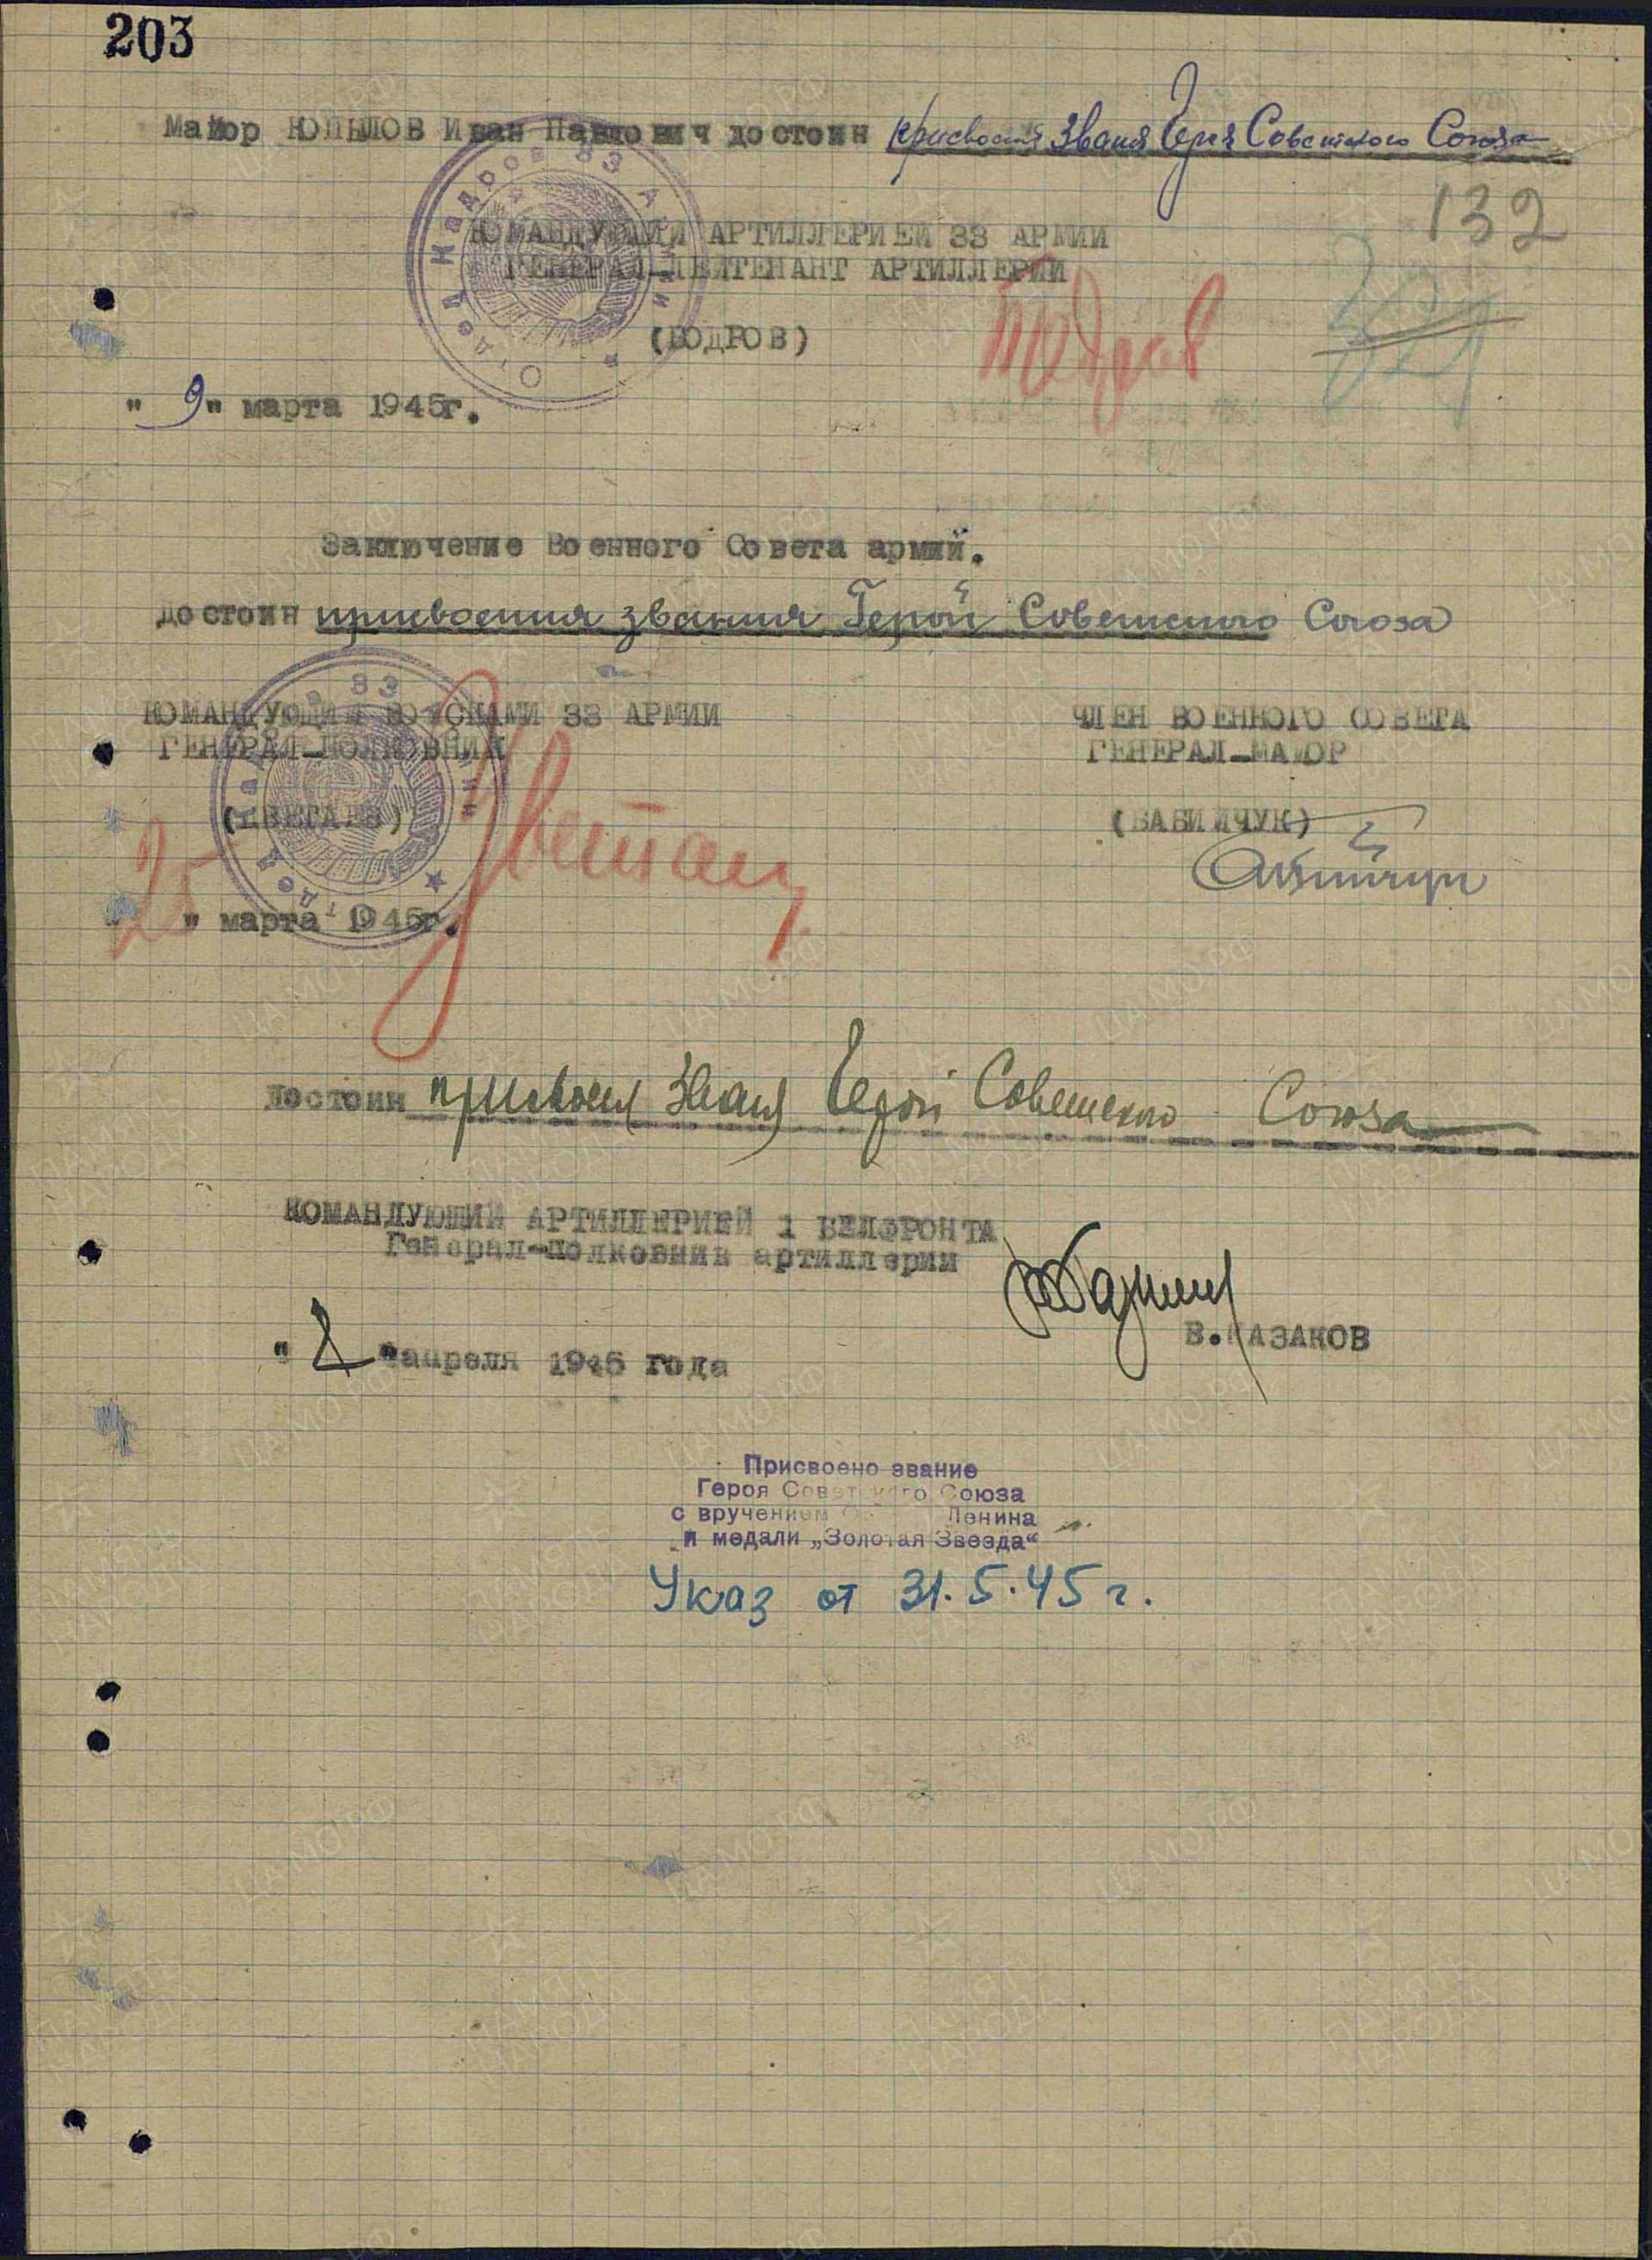 203
Майор КОПЫЛОВ Иван Павлович достоин присвоения звания Героя Советского Союза
132
КОМАНДУЮЩИЙ АРТИЛЛЕРИЕЙ 33 АРМИИ
ГЕНЕРАЛ-ЛЕЙТЕНАНТ АРТИЛЛЕРИИ
(БОДРОВ)
" 9 " марта 1945г.
Заключение Военного Совета армии.
достоин присвоения звания Герой Советского Союза
КОМАНДУЮЩИЙ ВОЙСКАМИ 33 АРМИИ ЧЛЕН ВОЕННОГО СОВЕТА
ГЕНЕРАЛ-ПОЛКОВНИК ГЕНЕРАЛ-МАЙОР
(ЦВЕТАЕВ) (БАБИЙЧУК)
25 " марта 1945г.
Достоин присвоения звания Герой Советского Союза
КОМАНДУЮЩИЙ АРТИЛЛЕРИЕЙ 1 БЕЛФРОНТА
Генерал-полковник артиллерии
В.КАЗАКОВ
" " апреля 1945 года
Присвоено звание
Героя Советского Союза
с вручением Ленина
и медали „Золотая Звезда“
Указ от 31.5.45 г.